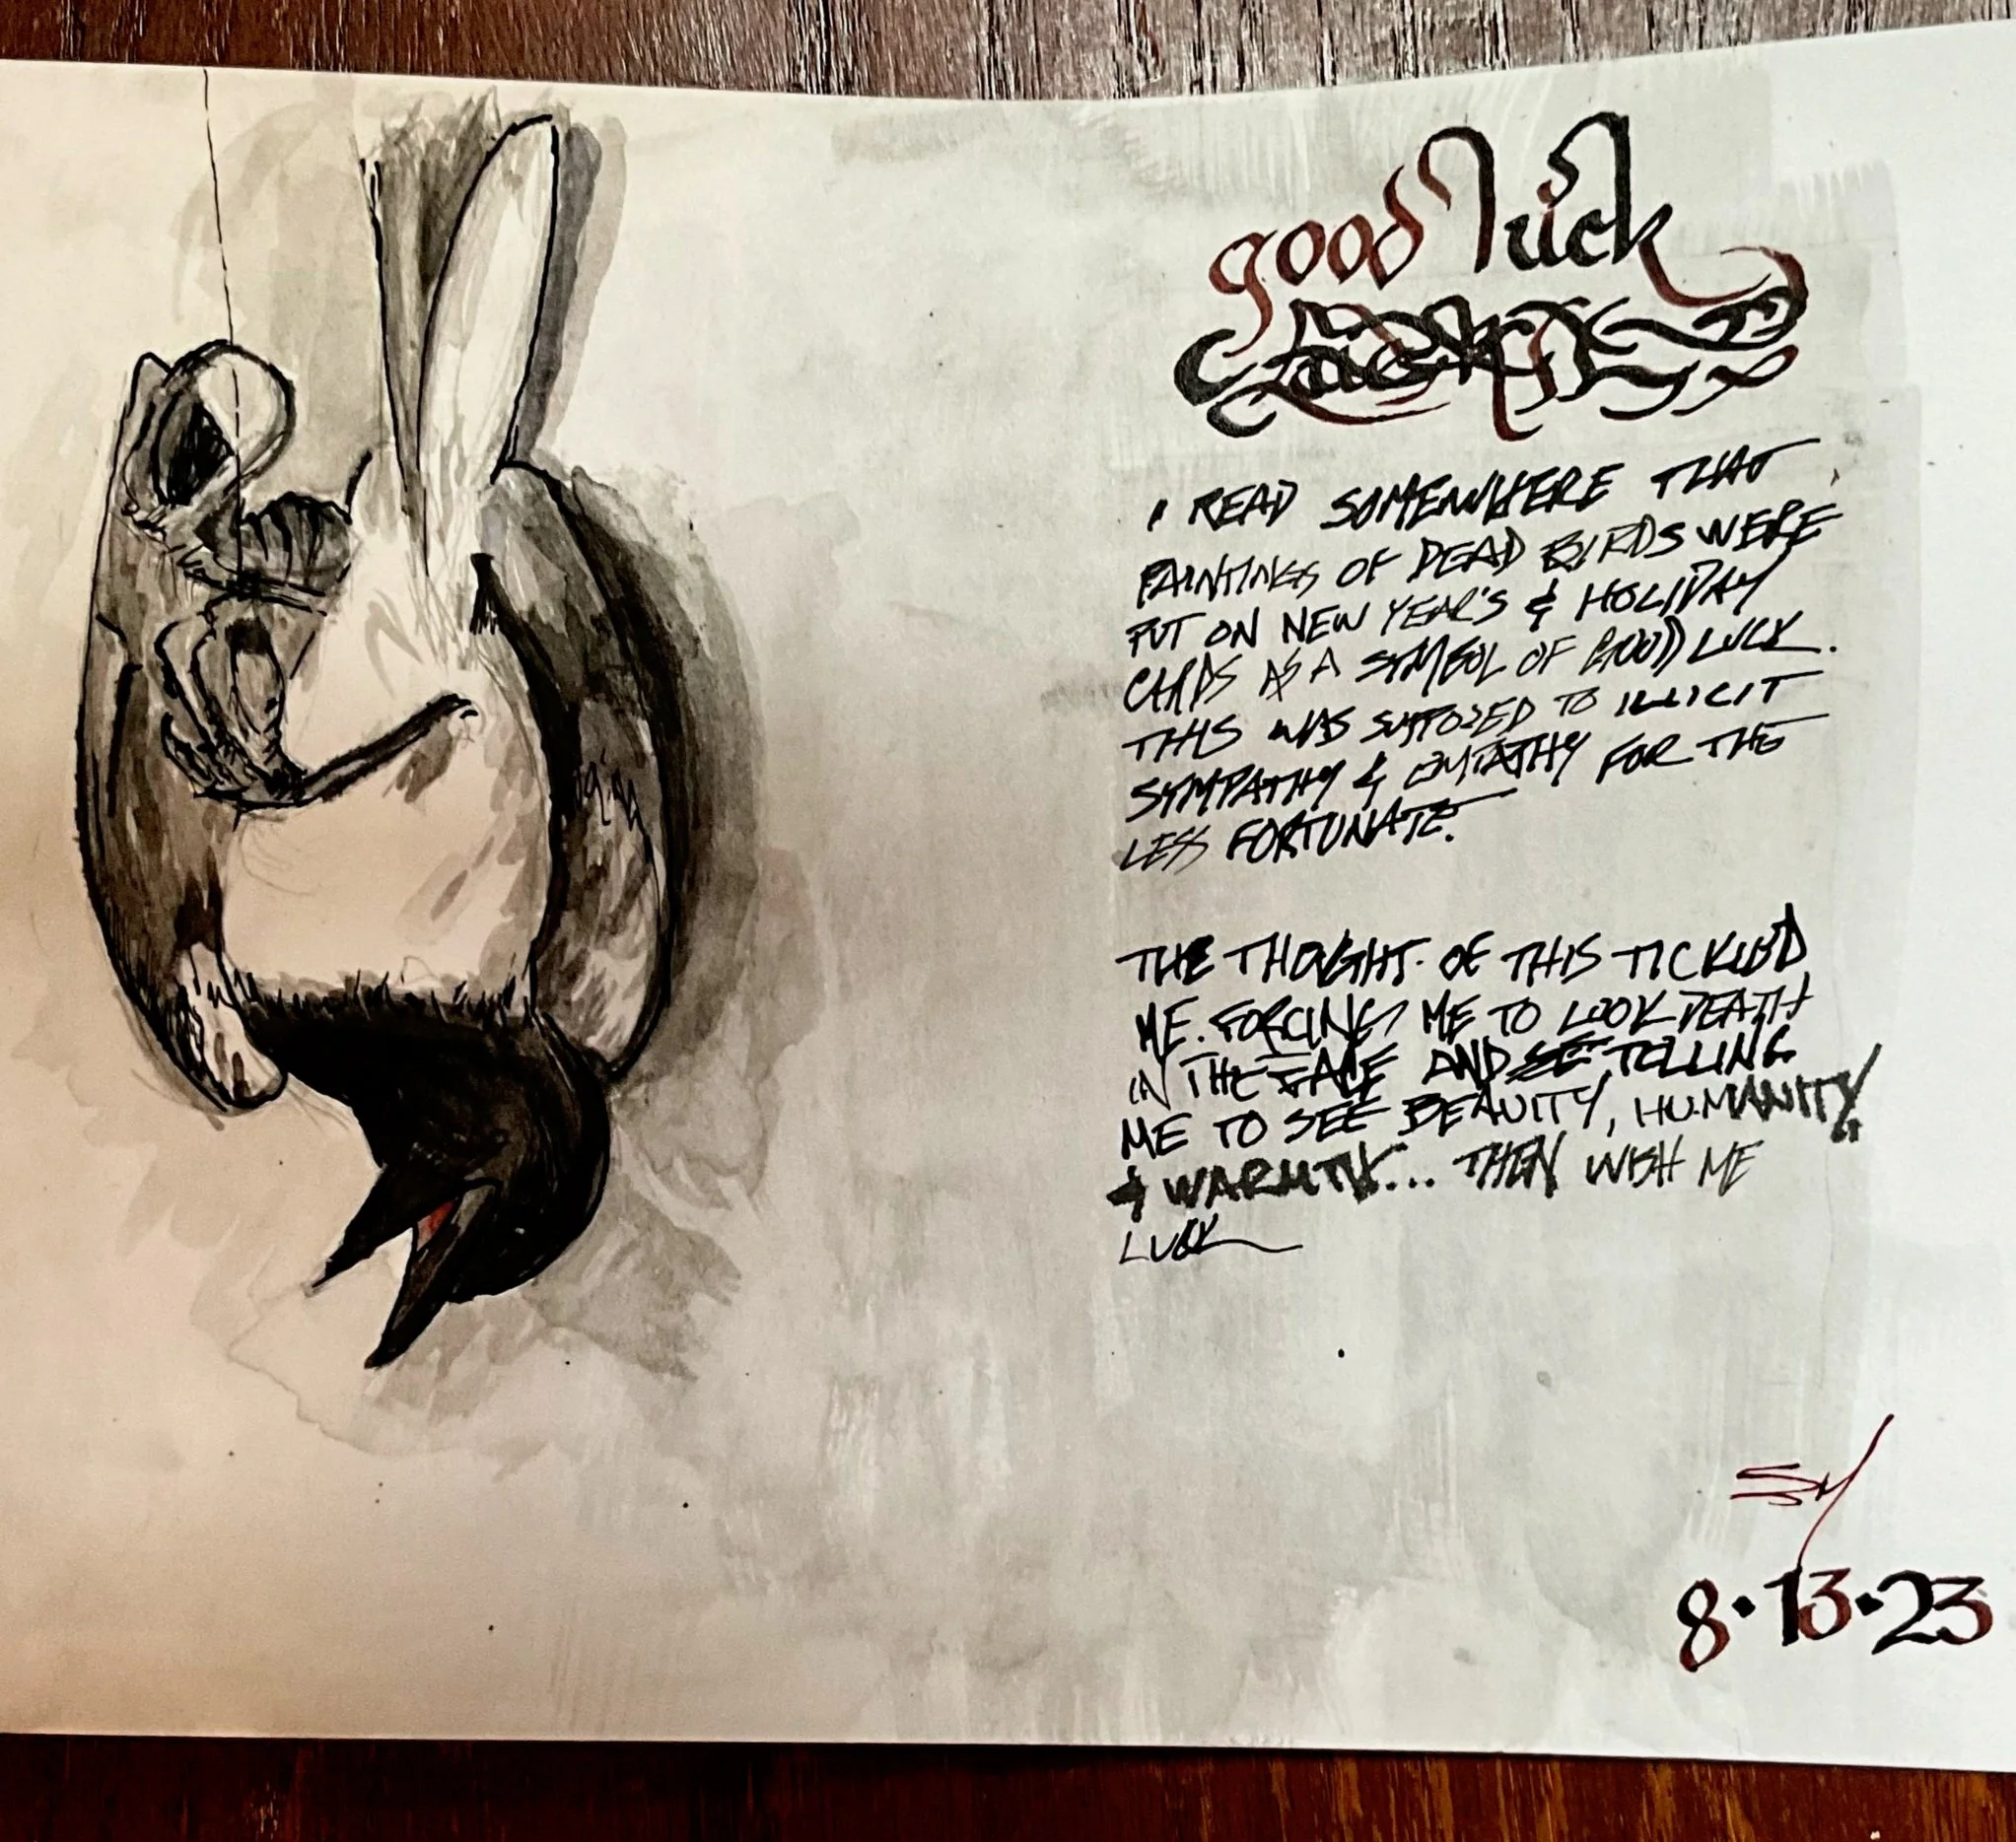 good luck
I READ SOMEWHERE THAT
PAINTINGS OF DEAD BIRDS WERE
PUT ON NEW YEAR'S & HOLIDAY
CARDS AS A SYMBOL OF GOOD LUCK.
THIS WAS SUPPOSED TO ILLICIT
SYMPATHY & EMPATHY FOR THE
LESS FORTUNATE.
THE THOUGHT OF THIS TICKLED
ME. FORCING ME TO LOOK DEATH
IN THE FACE AND TELLING
ME TO SEE BEAUTY, HUMANITY
& WARMTH... THEN WISH ME
LUCK
SY
8·13·23